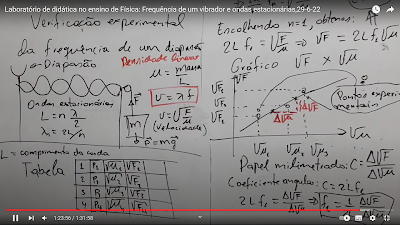 Laboratório de didática no ensino de Física: Frequência de um vibrador e ondas estacionárias,29-6-22
Verificação experimental
da frequência de um diapasão
Diapasão
Densidade linear
μ = massa / L
Ondas estacionárias
L = n λ/2
λ = 2L/n
v = λ f
v = √F/μ
(velocidade)
m
P = mg
L = comprimento da corda
Tabela
1 P₁ √μ₁ √F₁
2 P₂ √μ₂ √F₂
3 P₃ √μ₃ √F₃
4 P₄
Escolhendo n=1, obtemos:
2L f₁ = √F/μ ⇒ √F = 2L f₁ √μ
Gráfico √F × √μ
Pontos experimentais
Δ√F
Δ√μ
√μ
√μ₁ √μ₂ √μ₃
Papel milimetrado: C = Δ√F/Δ√μ
Coeficiente angular: C = 2L f₁
2L f₁ = Δ√F/Δ√μ ⇒ f₁ = 1/2L Δ√F/Δ√μ
1:23:56 / 1:31:58